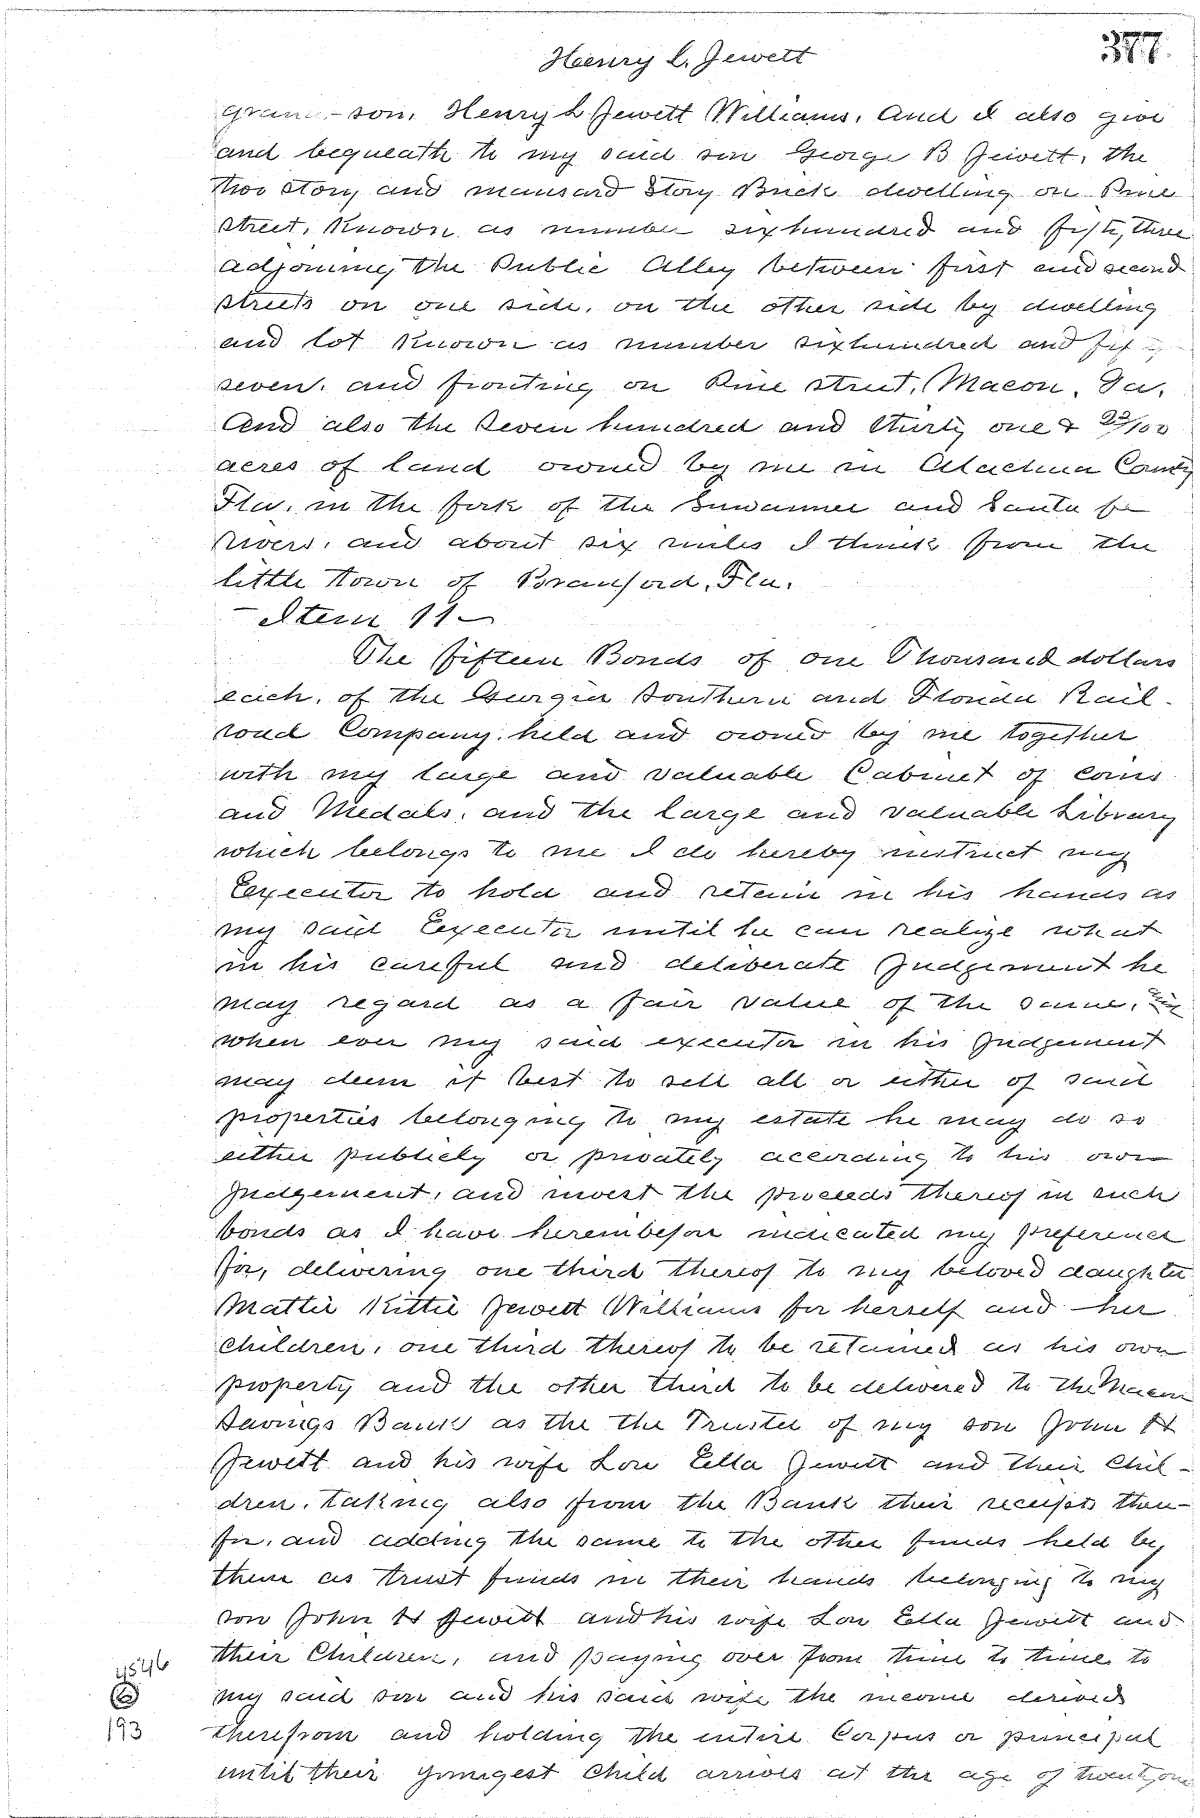 377
Henry L. Jewett
grand-son, Henry L Jewett Williams. And I also give
and bequeath to my said son George B Jewett, the
two story and mansard Story Brick dwelling on Pine
street, Known as number sixhundred and fifty three
adjoining the Public Alley between first and second
streets on one side, on the other side by dwelling
and lot Known as number sixhundred and fifty
seven, and fronting on Pine street, Macon, Ga.
And also the seven hundred and thirty one & 23/100
acres of land owned by me in Alachua County
Fla. in the fork of the Suwannee and Santa fe
rivers, and about six miles I think from the
little town of Branford, Fla.
- Item 11 -
The fifteen Bonds of one Thousand dollars
each, of the Georgia Southern and Florida Rail-
road Company, held and owned by me together
with my large and valuable Cabinet of coins
and Medals, and the large and valuable Library
which belongs to me I do hereby instruct my
Executor to hold and retain in his hands as
my said Executor until he can realize what
in his careful and deliberate Judgement he
may regard as a fair value of the same,
when ever my said executor in his Judgement
may deem it best to sell all or either of said
properties belonging to my estate he may do so
either publicly or privately according to his own
Judgement, and invest the proceeds thereof in such
bonds as I have hereinbefore indicated my preference
for, delivering one third thereof to my beloved daughter
Mattie Kittie Jewett Williams for herself and her
children, one third thereof to be retained as his own
property and the other third to be delivered to the Macon
Savings Bank as the the Trustee of my son John H
Jewett and his wife Lou Ella Jewett and their Chil-
dren, taking also from the Bank their receipts there-
for, and adding the same to the other funds held by
them as trust funds in their hands belonging to my
son John H Jewett and his wife Lou Ella Jewett and
their Children, and paying over from time to time to
my said son and his said wife the income derived
therefrom and holding the entire Corpus or principal
until their youngest child arrives at the age of twenty one
4546
6
193